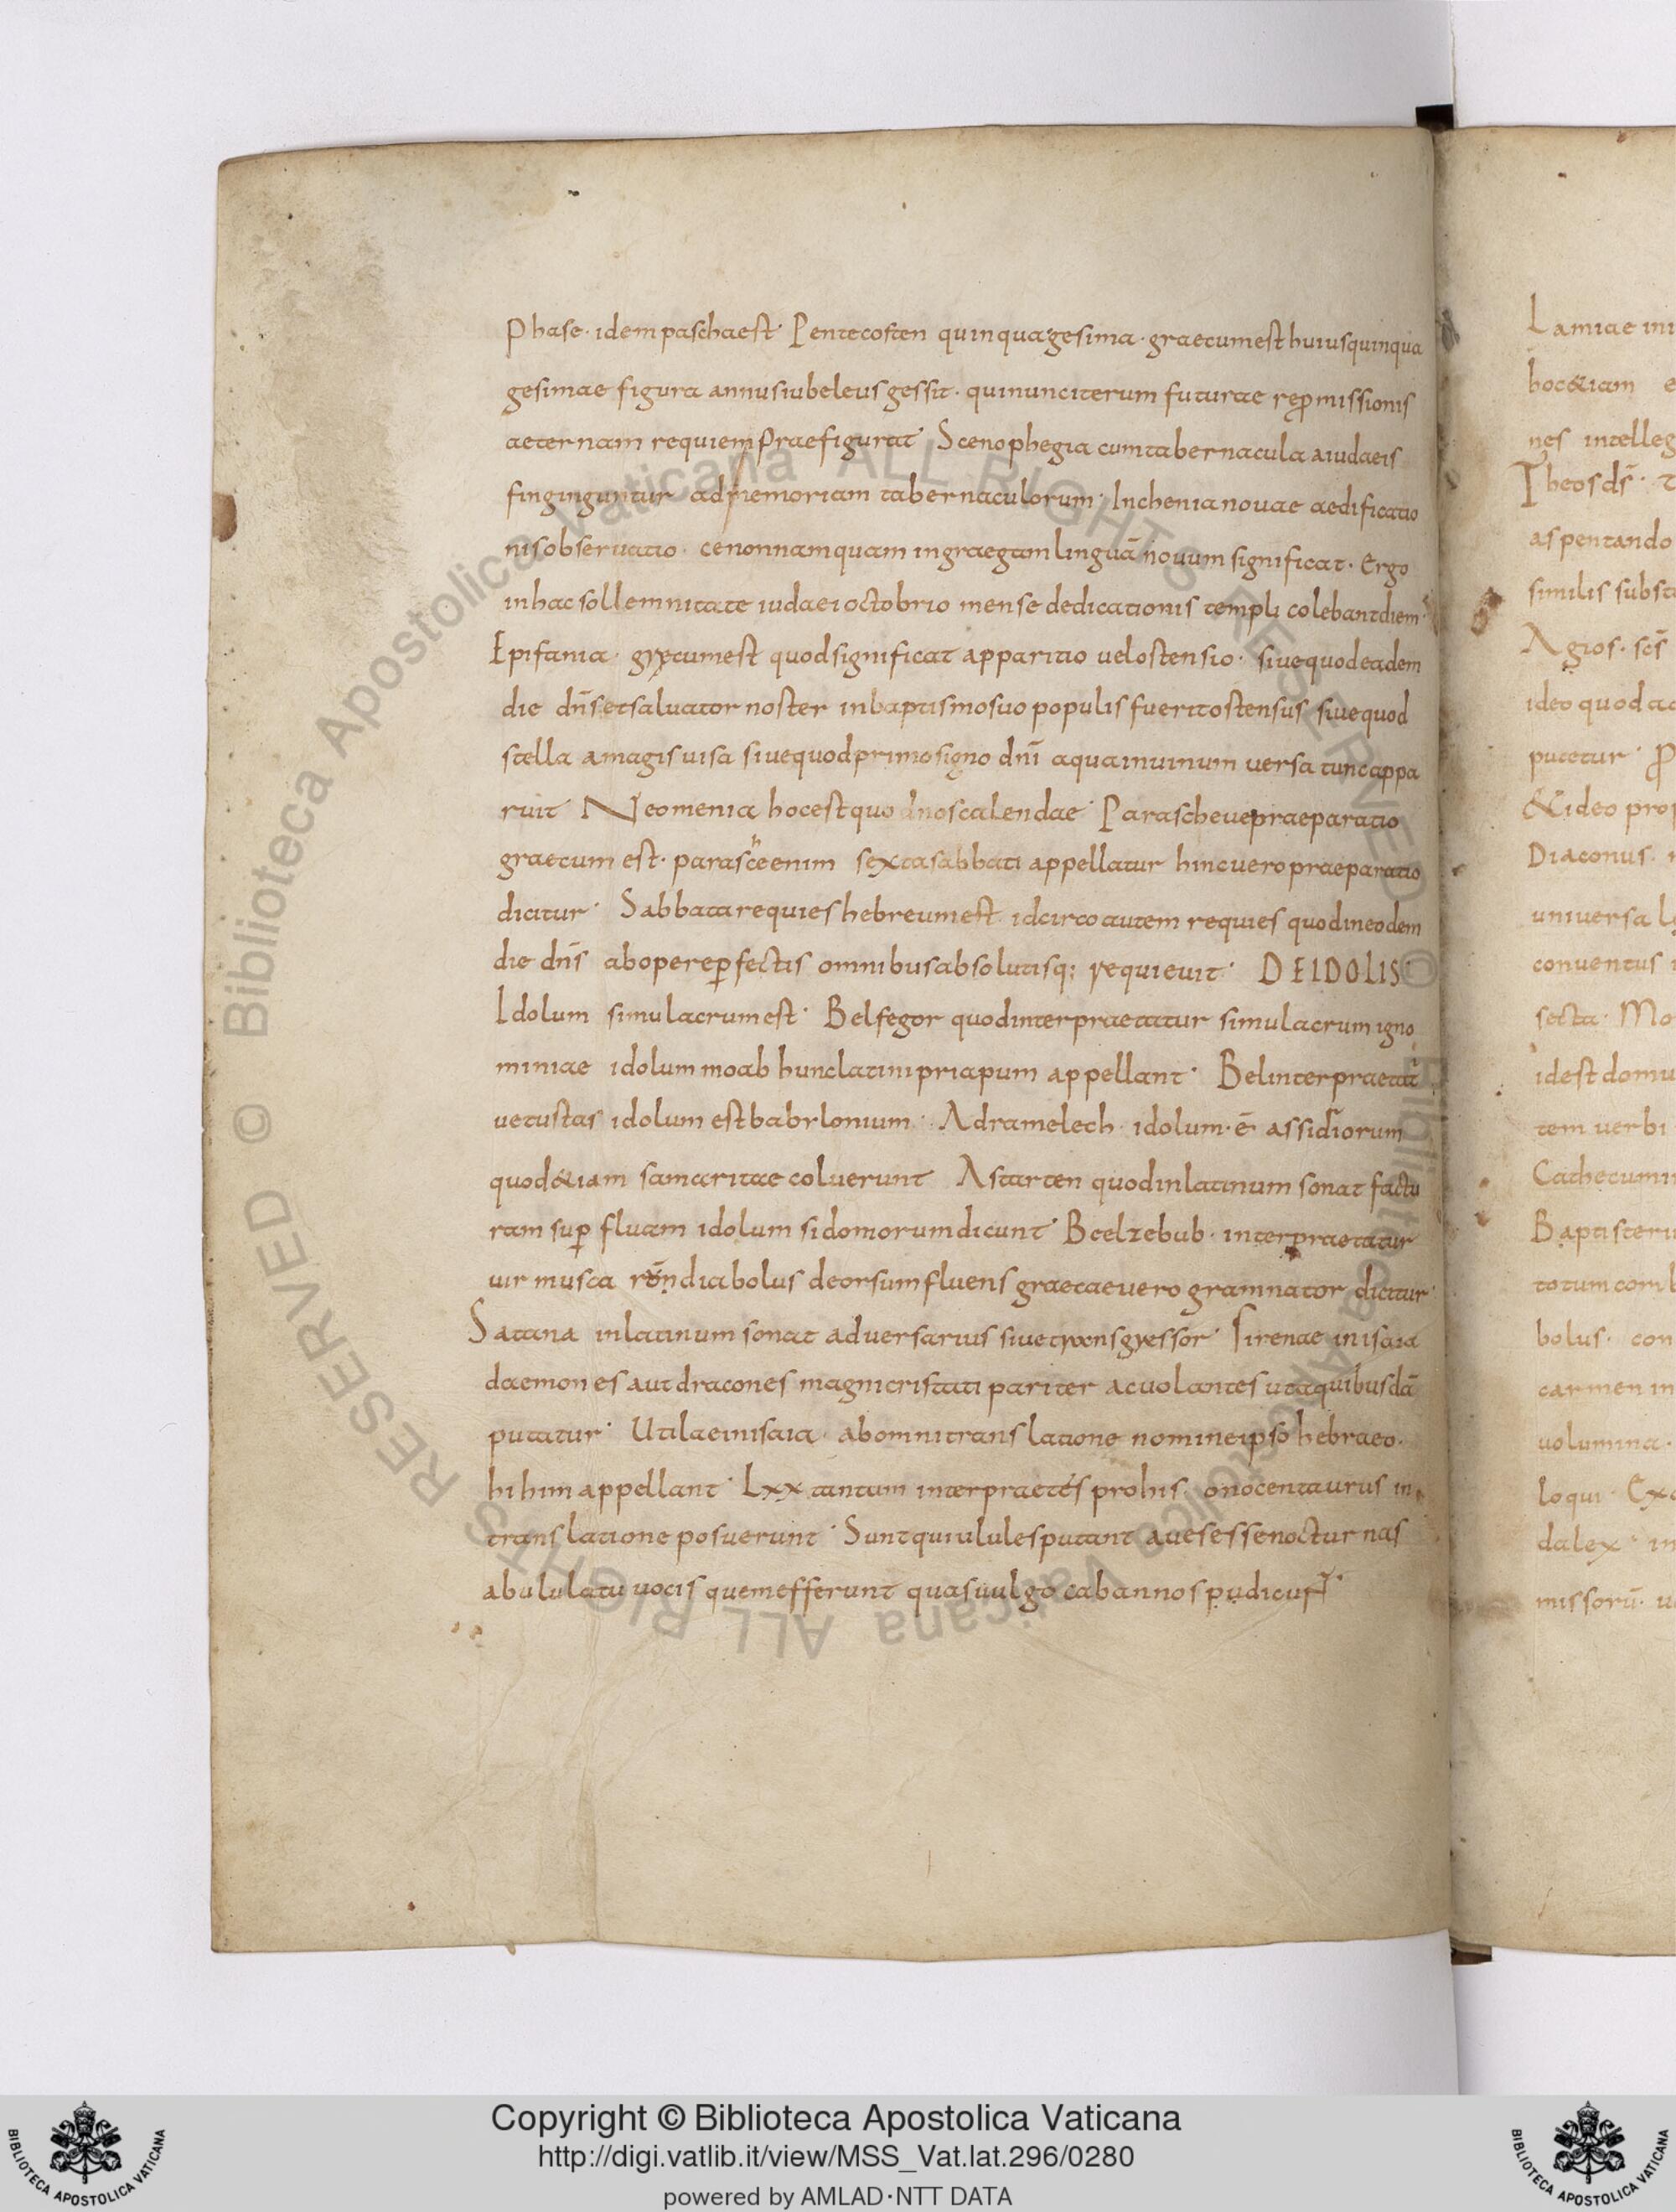 Phase · idem pascha est · Pentecosten quinquagesima · graecum est huius quinqua
gesimae figura annus iubeleus gessit · qui nunc iterum futurae rep̱missionis
aeternam requiem praefigurat · Scenophegia cum tabernacula a iudaeis
fingin guntur ad memoriam tabernaculorum · Inchenia novae aedificatio
nis observatio · cenon namquam in graegam linguā novum significat · Ergo
in hac sollemnitate iudaei octobrio mense dedicationis templi colebant diem ·
Epifania · grecum est quod significat apparitio vel ostensio · sive quod eadem
die dn̄s et salvator noster in baptismo suo populis fuerit ostensus sive quod
stella a magis visa sive quod primo signo dn̄i aqua in uinum versa tunc appa
ruit · Neomenia hoc est quod nos calendae · Parascheve praeparatio
graecum est · parasce enim sexta sabbati appellatur hinc vero praeparatio
dicitur · Sabbata requies hebreum est idcirco autem requies quod in eodem
die dn̄s ab opere ꝑfectis omnibus absolutisq; requieuit · DE IDOLIS ·
Idolum simulacrum est · Belfegor quod interpraetatur simulacrum igno
miniae idolum moab hunc latini priapum appellant · Bel interpraetat̄
vetustas idolum est babylonium · Adramelech · idolum · ē assidiorum
quod &iam samaritae coluerunt Astarten quod in latinum sonat factu
ram suꝑfluam idolum sidomorum dicunt · Beelzebub · interpraetatur
uir musca diabolus deorsum fluens graecae vero gramnator dicitur ·
Satana in latinum sonat adversarius sive transgressor · Sirenae in isaia
daemones aut dracones magni cristati pariter ac volantes ut a quibusdā
putatur · Utilae in isaia · ab omni translatione nomine ipso hebraeo ·
hi him appellant · Lxx tantum interpraetes pro his · onocentaurus in
translatione posuerunt · Sunt qui ulules putant aves esse nocturnas
ab ululatu vocis quem efferunt quas uulgo cabannos pudicur̄ ·
Lamiae
hoc &iam
nes intelleg
Theos ds̄ ·
aspentando
similis
Agios · scs̄
ideo quod
putetur ·
&ideo
Diaconus ·
universa
conventus
secta ·
id est domu
tem verbi
totum
bolus · con
carmen in
volumina ·
loqui ·
dalex · in
missorū ·
Biblioteca Apostolica Vaticana ALL RIGHTS RESERVED ©
Copyright © Biblioteca Apostolica Vaticana
http://digi.vatlib.it/view/MSS_Vat.lat.296/0280
powered by AMLAD·NTT DATA
BIBLIOTECA APOSTOLICA VATICANA
BIBLIOTECA APOSTOLICA VATICANA